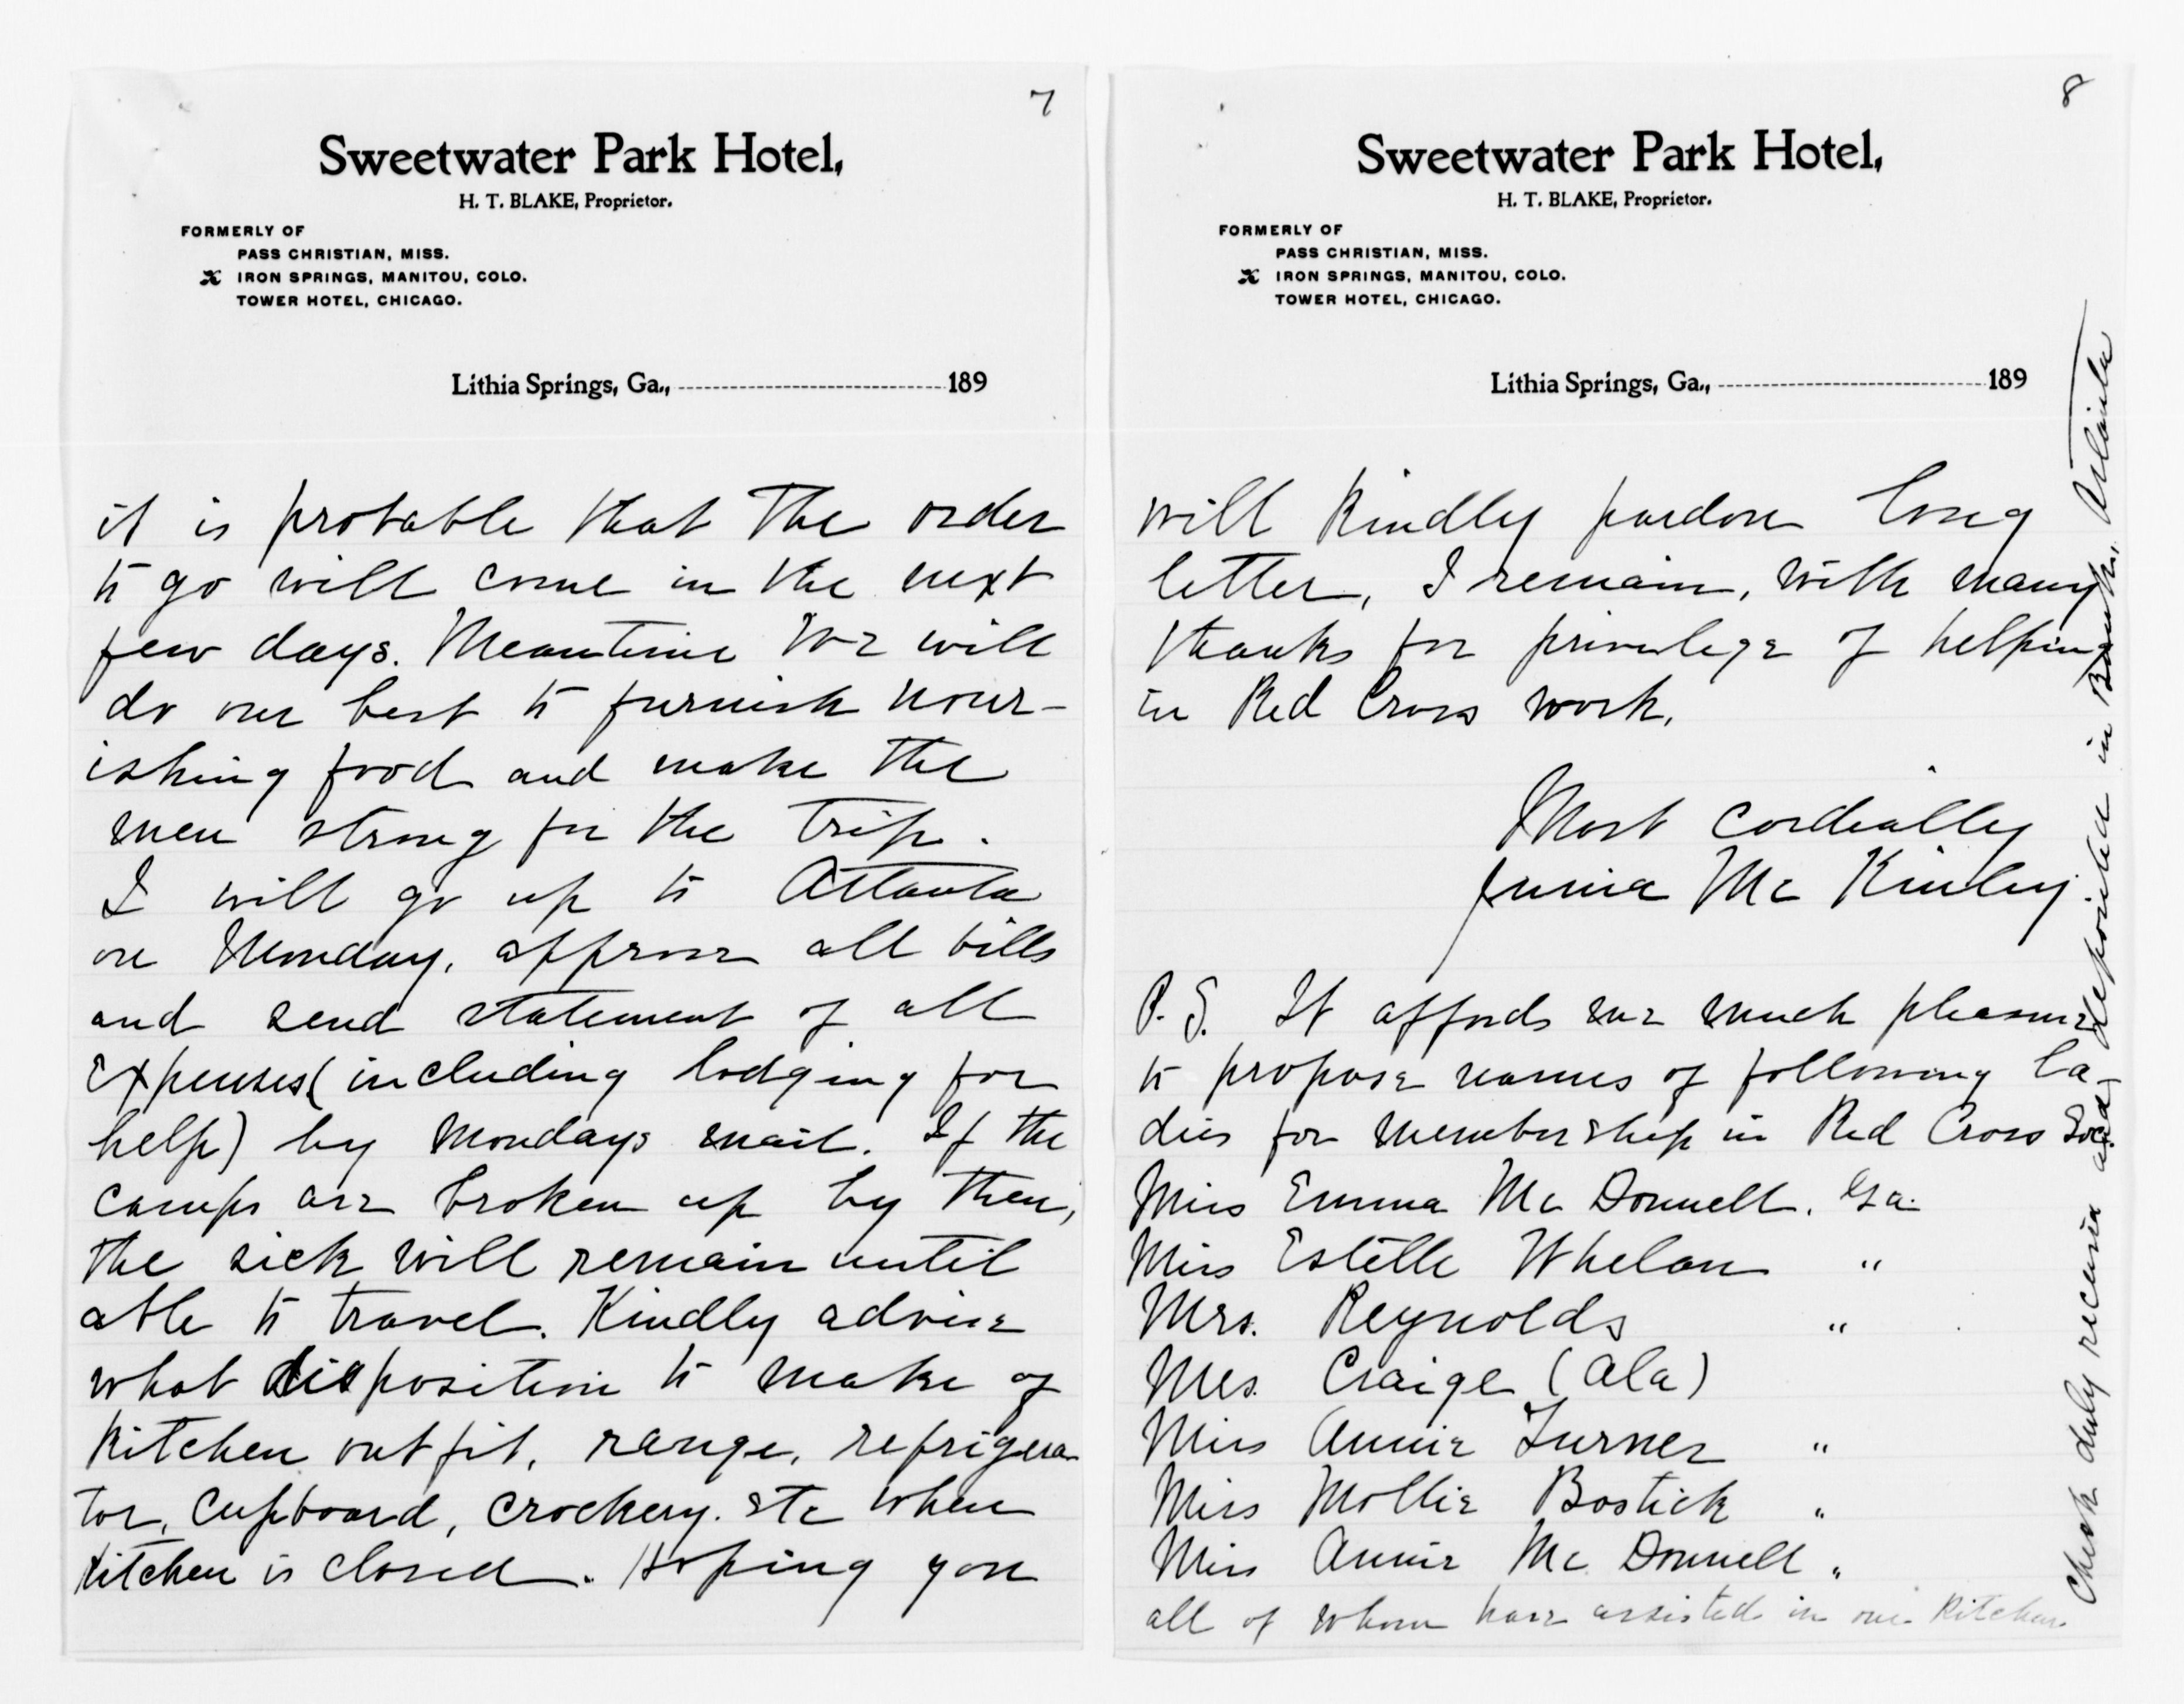 7
Sweetwater Park Hotel,
H. T. BLAKE, Proprietor.
FORMERLY OF
PASS CHRISTIAN, MISS.
IRON SPRINGS, MANITOU, COLO.
TOWER HOTEL, CHICAGO.
Lithia Springs, Ga., 189
it is probable that the order
to go will come in the next
few days. Meantime we will
do our best to furnish nour-
ishing food and make the
men strong for the trip.
I will go up to Atlanta
on Monday, approve all bills
and send statement of all
expenses (including lodging for
help) by Mondays mail. If the
camps are broken up by then,
the sick will remain until
able to travel. Kindly advise
what disposition to make of
kitchen outfit, range, refrigera
tor, cupboard, crockery. etc when
kitchen is closed. Hoping you
8
Sweetwater Park Hotel,
H. T. BLAKE, Proprietor.
FORMERLY OF
PASS CHRISTIAN, MISS.
IRON SPRINGS, MANITOU, COLO.
TOWER HOTEL, CHICAGO.
Lithia Springs, Ga., 189
will kindly pardon long
letter, I remain, with many
thanks for privilege of helping
in Red Cross work.
Most cordially
Junia McKinley.
P.S. It affords me much pleasure
to propose names of following la-
dies for membership in Red Cross Soc.
Miss Emma McDonnell. Ga.
Miss Estelle Whelan "
Mrs. Reynolds "
Mrs. Craige (Ala)
Miss Annie Turner "
Miss Mollie Bostick "
Miss Annie McDonnell "
all of whom have assisted in our kitchen
Check duly received and deposited in Bank, Atlanta